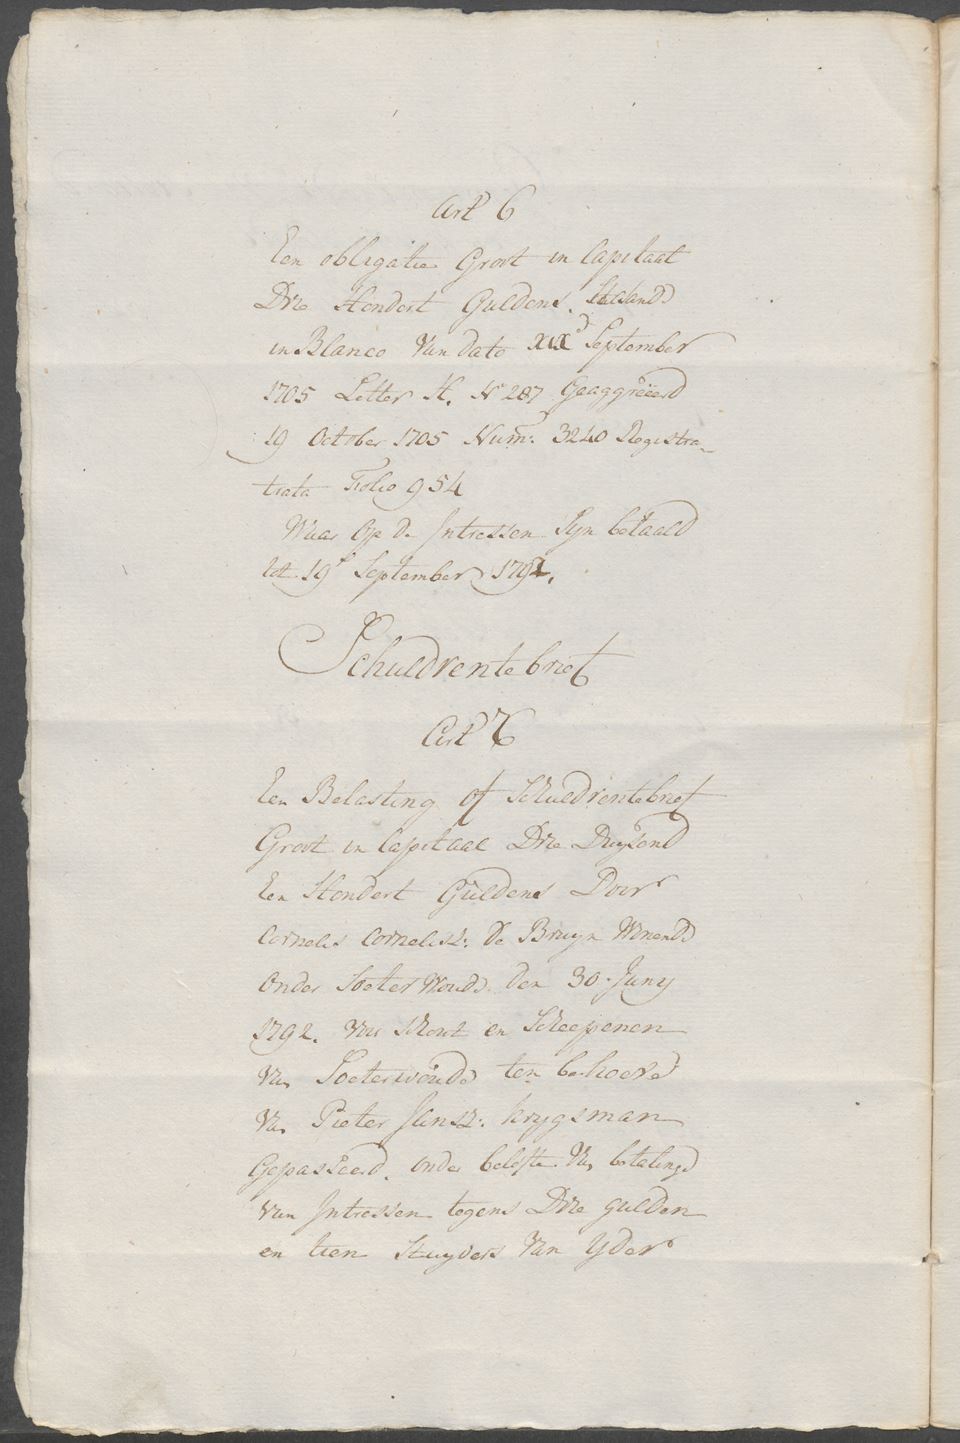 Art 6
Een obligatie Groot in Capitaal
Drie Hondert Guldens. Staande
in Blanco Van dato XIXd September
1705 Letter H. No 287 Geaggreëerd
19 October 1705 Num: 3240 Registra-
trata Folio 954
Waar Op de Intressen Syn betaald
tot 19e September 1792.
Schuldrentebrief
Art 7
Een Belasting of Schuldrentebrief
Groot in Capitaal Drie Duysend
Een Hondert Guldens Door
Cornelis Cornelisz: de Bruyn Wonende
Onder Soeterwoude den 30 Juny
1792. voor Schout en Scheepenen
Van Soeterwoude ten behoeve
Van Pieter Jansz: Krygsman
Gepasseerd. onder belofte Van betalinge
Van Intressen tegens Drie gulden
en tien Stuyvers Van Yder